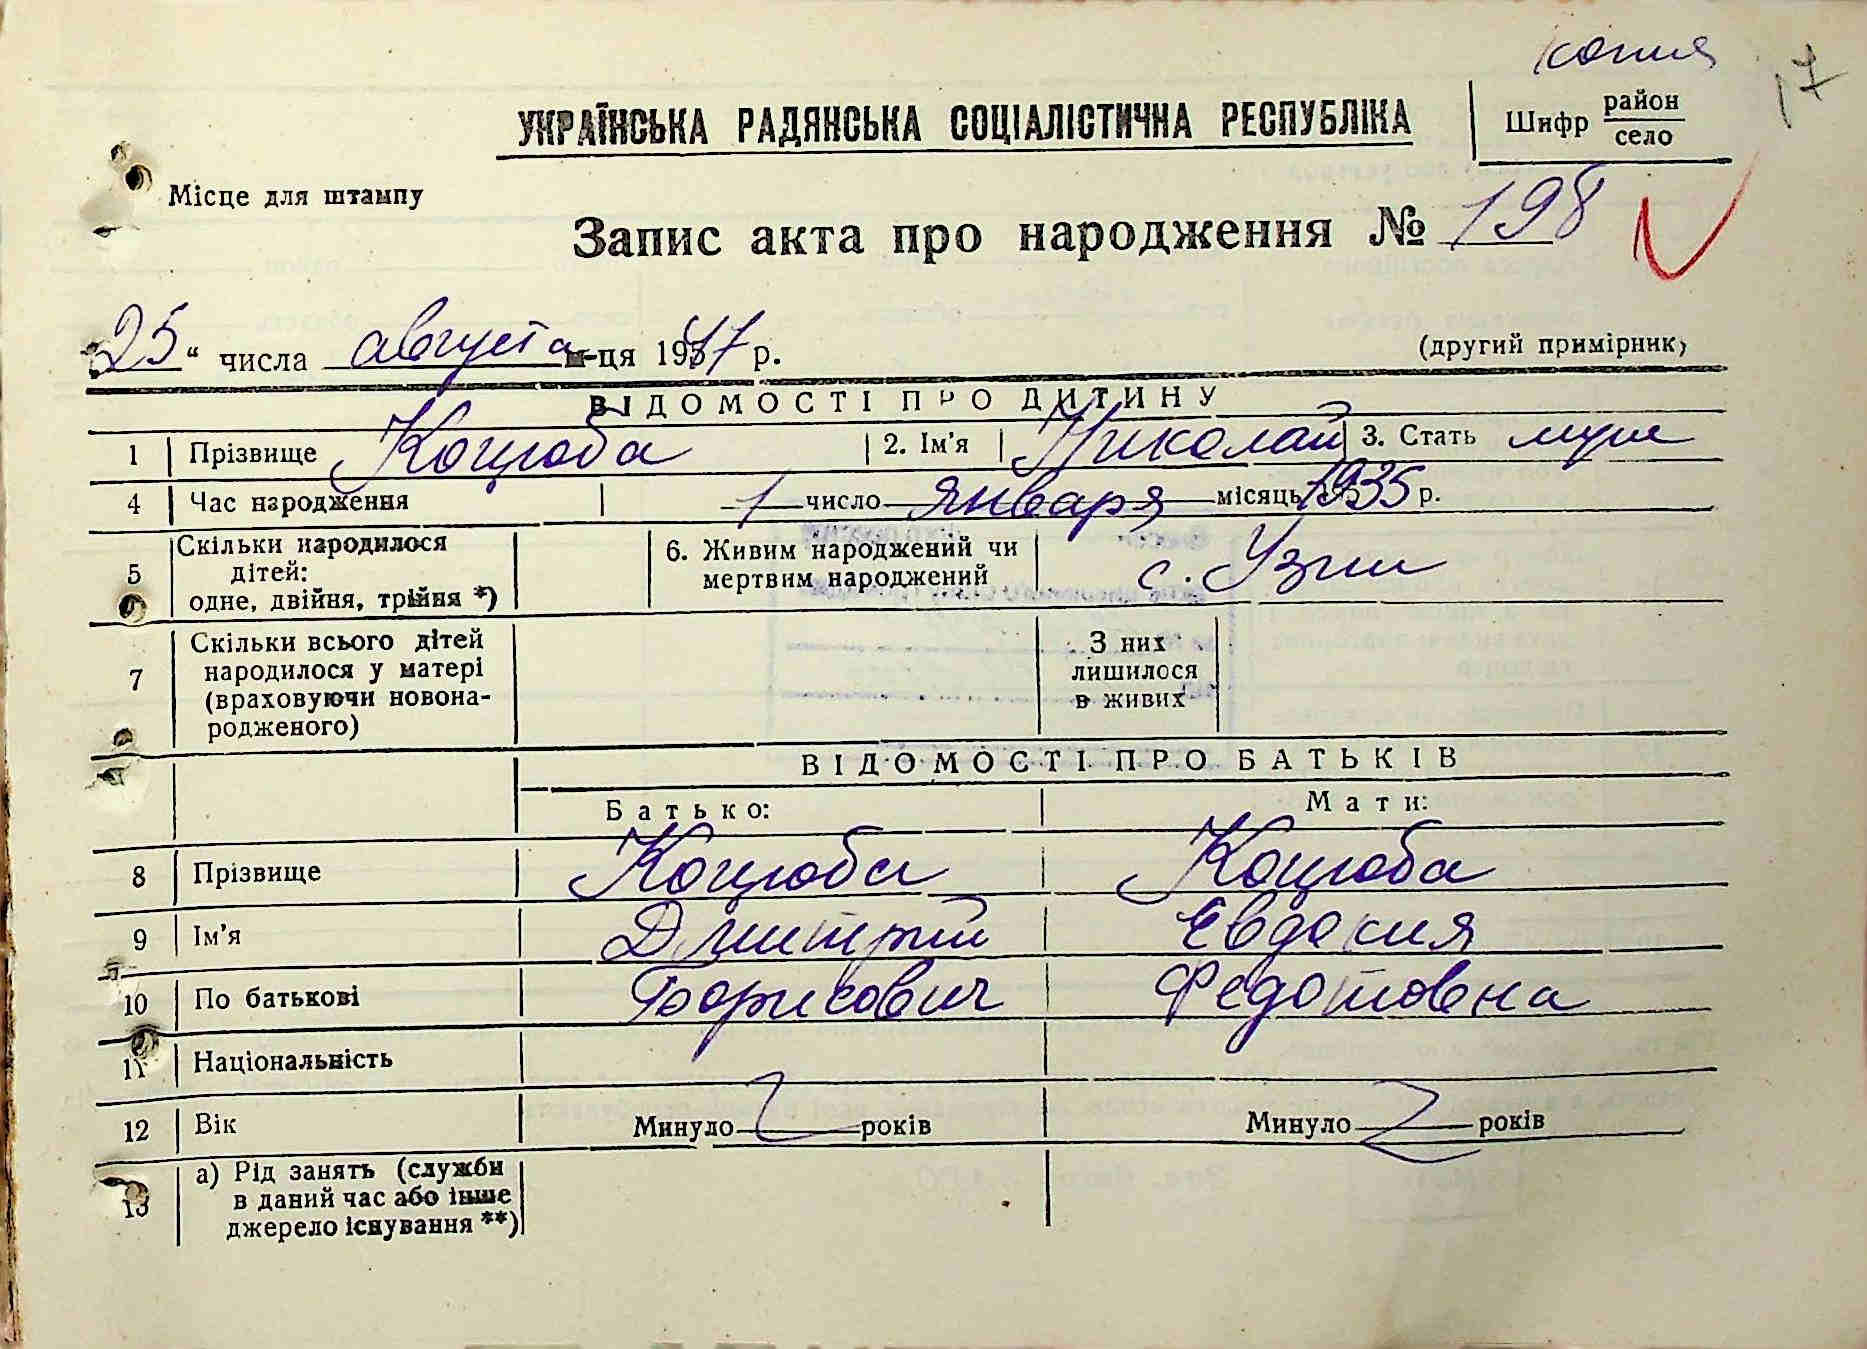 копия
17
УКРАЇНСЬКА РАДЯНСЬКА СОЦІАЛІСТИЧНА РЕСПУБЛІКА
Шифр район
село
Місце для штампу
Запис акта про народження № 198
25 " числа августа м-ця 1947 р.
(другий примірник)
ВІДОМОСТІ ПРО ДИТИНУ
1 Прізвище Коцюба 2. Ім'я Николай 3. Стать муж
4 Час народження 1 число января місяць 1935 р.
5 Скільки народилося дітей: одне, двійня, трійня *) 6. Живим народжений чи мертвим народжений с. Узин
7 Скільки всього дітей народилося у матері (враховуючи новонародженого) З них лишилося в живих
ВІДОМОСТІ ПРО БАТЬКІВ
Батько: Мати:
8 Прізвище Коцюба Коцюба
9 Ім'я Дмитрий Евдокия
10 По батькові Борисович Федотовна
11 Національність
12 Вік Минуло років Минуло років
13 а) Рід занять (служби в даний час або інше джерело існування **)